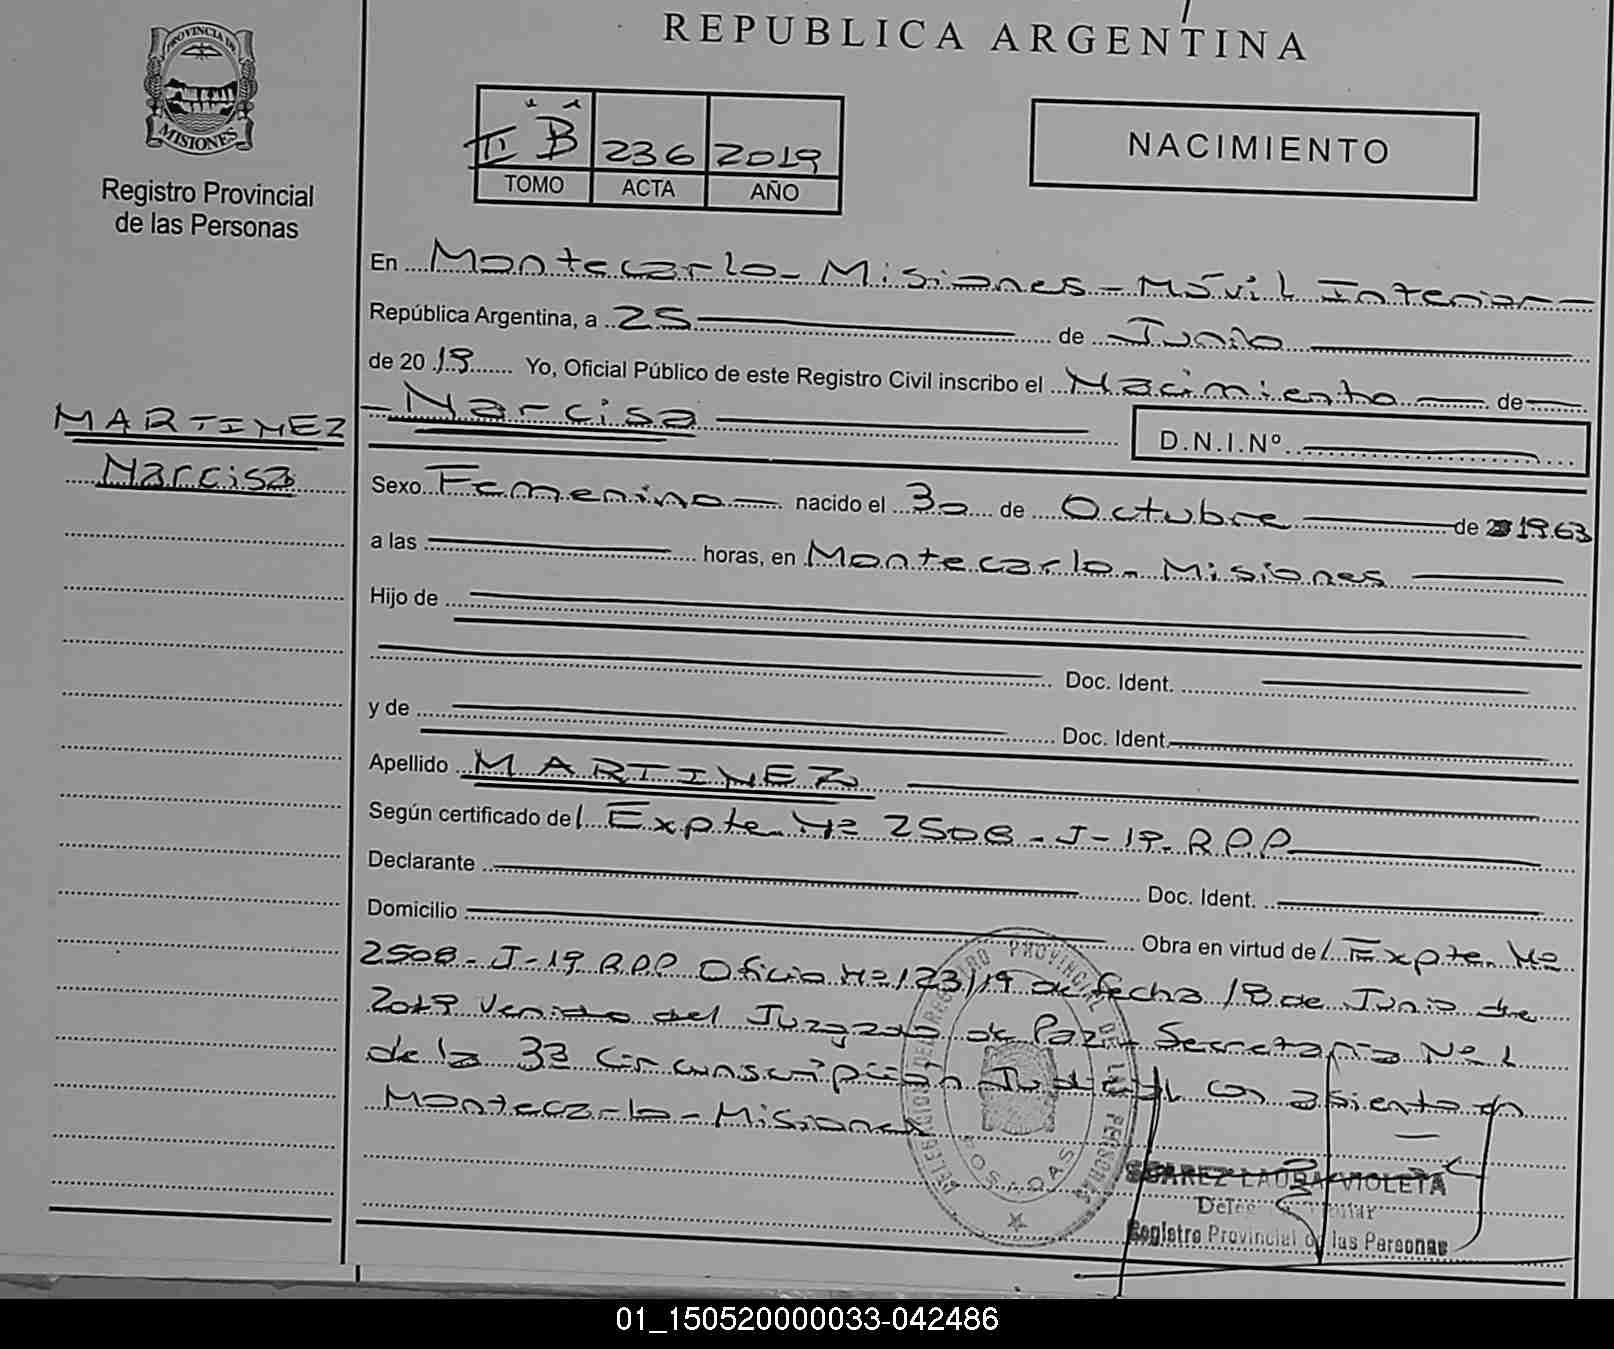 REPUBLICA ARGENTINA
PROVINCIA DE
MISIONES
Registro Provincial
de las Personas
II B 236 2019
TOMO ACTA AÑO
NACIMIENTO
En Montecarlo - Misiones - Móvil Interior
República Argentina, a 25 de Junio
de 2019 Yo, Oficial Público de este Registro Civil inscribo el Nacimiento de
MARTINEZ
Narcisa
Narcisa
D.N.I.Nº
Sexo Femenino nacido el 30 de Octubre de 1963
a las horas, en Montecarlo - Misiones
Hijo de
Doc. Ident.
y de
Doc. Ident.
Apellido MARTINEZ
Según certificado de/ Expte. Nº 2508 - J - 19. R.P.P
Declarante Doc. Ident.
Domicilio
Obra en virtud de/ Expte. Nº
2508 - J - 19 R.P.P Oficio Nº 123/19 de fecha 18 de Junio de
2019 Venido del Juzgado de Paz Secretaria Nº 1
de la 3ª Circunscripción Judicial con asiento en
Montecarlo - Misiones
DELEGACION DEL REGISTRO PROVINCIAL DE LAS PERSONAS
POSADAS
SUAREZ LAURA VIOLETA
Registro Provincial de las Personas
01_150520000033-042486